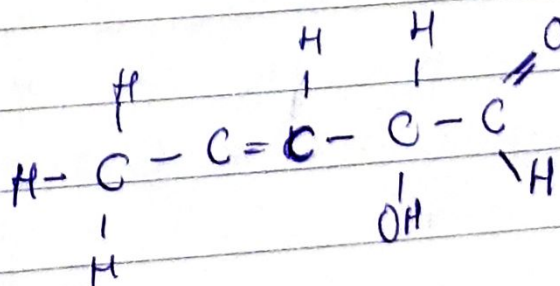 H H O
H
H - C - C = C - C - C
H
OH
H